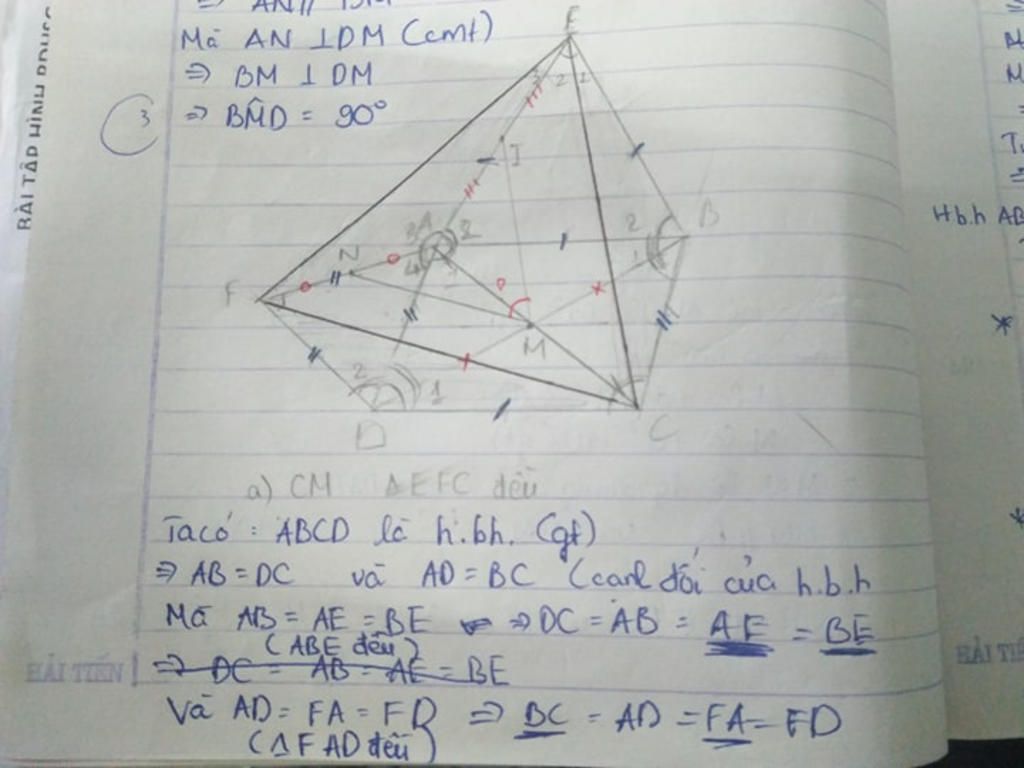 ⇒ AN // DM
Mà AN ⊥ DM (cmt)
⇒ BM ⊥ DM
3 ⇒ BM̂D = 90°
BÀI TẬP HÌNH
E
3 2 1
I
B
2
1
A
3 2
4 1
N
F
1
M
2 1
D
C
H b.h AB
a) CM ΔEFC đều
Ta có : ABCD là h.bh. (gt)
⇒ AB = DC và AD = BC (cạnh đối của h.b.h
Mà AB = AE = BE ⇒ DC = AB = AE = BE
(ABE đều)
⇒ DC = AB = AE = BE
HẢI TIẾN
Và AD = FA = FD ⇒ BC = AD = FA = FD
(ΔFAD đều)
HẢI TIẾ